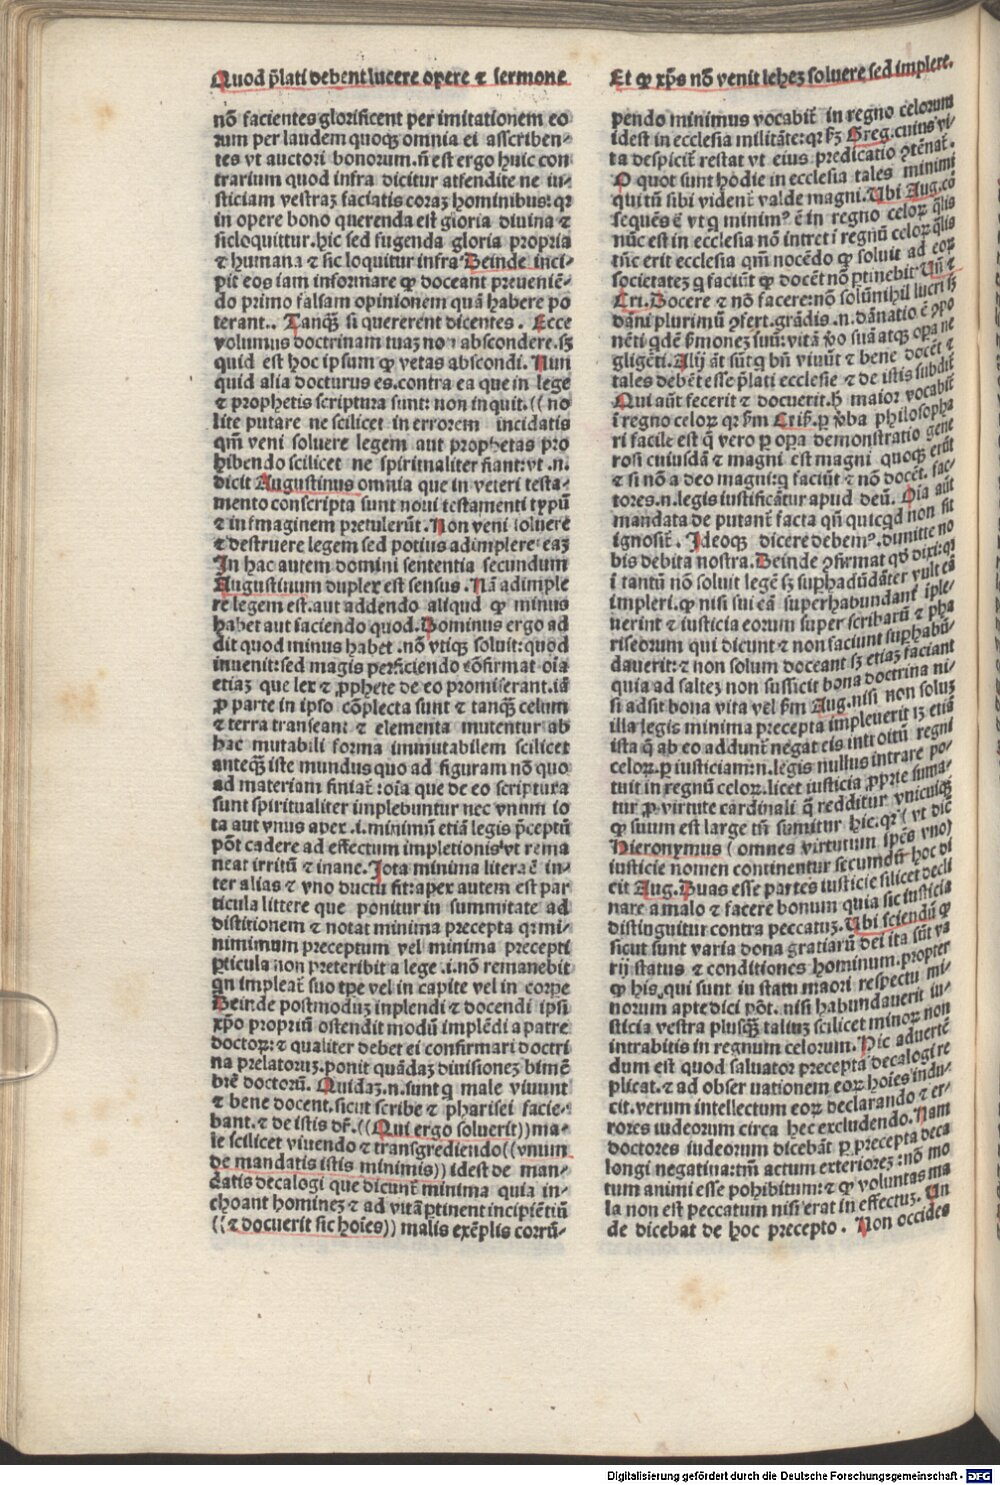 Quod p̄lati debent lucere opere ⁊ sermone
nō facientes glorificent per imitationem eo
rum per laudem quoqꝫ omnia ei asscriben⸗
tes vt auctori bonorum.ñ est ergo huic con
trarium quod infra dicitur attendite ne iu⸗
sticiam vestraꝫ faciatis coraꝫ hominibus: qꝛ
in opere bono querenda est gloria diuina ⁊
sicloquittur.hic sed fugenda gloria propria
⁊ humana ⁊ sic loquitur infra Deinde inci⸗
pit eos iam informare ꝙ doceant preueniē⸗
do primo falsam opinionem quā habere po
terant.. Tanqꝫ si quererent dicentes . Ecce
volumus doctrinam tuaꝫ non abscondere.sꝫ
quid est hoc ipsum ꝙ vetas abscondi. Nun
quid alia docturus es.contra ea que in lege
⁊ prophetis scriptura sunt: non inquit.((no
lite putare ne scilicet in errorem incidatis
qm̄ veni soluere legem aut prophetas pro
hibendo scilicet ne spiritualiter fiant:vt .n.
dicit Augustinus omnia que in veteri testa⸗
mento conscripta sunt noui testamenti typū
⁊ in imaginem pretulerūt. Non veni soluere
⁊ destruere legem sed potius adimplere eaꝫ
In hac autem domini sententia secundum
Augustinum duplex est sensus . Nā adimple
re legem est.aut addendo aliqud ꝙ minus
habet aut faciendo quod. Dominus ergo ad
dit quod minus habet .nō vtiqꝫ soluit:quod
inuenit:sed magis perficiendo cōfirmat oīa
etiaꝫ que lex ⁊ ꝓphete de eo promiserant.iā
ꝓ parte in ipso cōplecta sunt ⁊ tanqꝫ celum
⁊ terra transeant ⁊ elementa mutentur ab
hac mutabili forma immutabilem scilicet
anteqꝫ iste mundus quo ad figuram nō quo
ad materiam finiat̄ :oīa que de eo scriptura
sunt spiritualiter implebuntur nec vnum io
ta aut vnus apex .i.minimū etiā legis p̄ceptū
pōt cadere ad effectum impletionis vt rema
neat irritū ⁊ inane. Jota minima litera ē in⸗
ter alias ⁊ vno ductu fit:apex autem est par
ticula littere que ponitur in summitate ad
distitionem ⁊ notat minima precepta qꝛ mi⸗
nimimum preceptum vel minima precepti
ꝑticula non preteribit a lege .i.nō remanebit
qn impleat̄ suo tꝑe vel in capite vel in corꝑe
Deinde postmoduꝫ inplendi ⁊ docendi ipsi
xp̄o propriū ostendit modū implēdi a patre
doctoꝝ: ⁊ qualiter debet ei confirmari doctri
na prelatoruꝫ.ponit quādaꝫ diuisioneꝫ bimē
brē doctorū. Quidaꝫ.n.sunt q male viuunt
⁊ bene docent.sicut scribe ⁊ pharisei facie⸗
bant. ⁊ de istis dr̄.((Qui ergo soluerit))ma⸗
le scilicet viuendo ⁊ transgrediendo((vnum
de mandatis istis minimis)) idest de man⸗
datis decalogi que dicunt̄ minima quia in⸗
choant homineꝫ ⁊ ad vitā ꝑtinent incipiētiū
((⁊ docuerit sic hoies)) malis exēplis corrū⸗
Et ꝙ xp̄s nō venit leheꝫ soluere sed implere.
pendo minimus vocabit̄ in regno celorum
idest in ecclesia militāte: qꝛ sꝫ Greg.cuius vi⸗
ta despicit̄ restat vt eius predicatio ꝯtēnat̄.
O quot sunt hodie in ecclesia tales minimi
qui tn̄ sibi vident̄ valde magni. Ubi Aug.cō
sequēs ē vt q minimꝰ ē in regno celoꝝ q̄lis
nūc est in ecclesia nō intret i regnū celoꝝ q̄lis
tūc erit ecclesia qm̄ nocēdo ꝙ soluit ad eoꝝ
societateꝫ q faciūt ꝙ docēt nō ꝑtinebit Un̄ ⁊
Cri. Docere ⁊ nō facere:nō solūnihil lucri sꝫ
dani plurimū ꝯfert.grādis .n.dānatio ē ꝯpo
nēti qdē ẜmoneꝫ suū:vitā v̄o suā atqꝫ oꝑa ne
gligēti. Alij āt sūt q bn̄ viuūt ⁊ bene docēt ⁊
tales debēt esse p̄lati ecclesie ⁊ de istis subdit̄
Qui aūt fecerit ⁊ docuerit.h maior vocabit̄
ī regno celoꝝ qꝛ ẜm Criſ̄.ꝑ v̄ba philosopha
ri facile est q̄ vero ꝑ oꝑa demonstratio gene
rosi cuiusdā ⁊ magni est magni quoqꝫ erūt
⁊ si nō a deo magni:q faciūt ⁊ nō docēt. fac⸗
tores.n.legis iustificātur apud deū. Oīa aūt
mandata de putant̄ facta qn̄ quicqd non fit
ignoscit̄ . Ideoqꝫ dicere debemꝰ.dimitte no
bis debita nostra. Deinde ꝯfirmat qd̄ dixi:qꝛ
i tantū nō soluit legē sꝫ suꝑhadūdāter vult eā
impleri.ꝙ nisi sui eā superhabundant iple⸗
uerint ⁊ iusticia eorum super scribarū ⁊ pha
riseorum qui dicunt ⁊ non faciunt suꝑhabū⸗
dauerit: ⁊ non solum doceant sꝫ etiaꝫ faciant
quia ad salteꝫ non sufficit bona doctrina ni⸗
si adsit bona vita vel ẜm Aug.nisi non soluꝫ
illa legis minima precepta impleuerit sꝫ etiā
ista q̄ ab eo addunt̄ negat eis introitū regni
celoꝝ.ꝑ iusticiam:n.legis nullus intrare po⸗
tuit in regnū celoꝝ.licet iusticia ꝓprie suma⸗
tur ꝓ virtute cardinali q̄ redditur vnicuiqꝫ
ꝙ suum est large tn̄ sumitur hic.qꝛ (vt dic̄
Hieronymus (omnes virtutum spēs vno)
iusticie nomen continentur secundū hoc di
cit Aug. Duas esse partes iusticie silicet decli
nare a malo ⁊ facere bonum quia sic iusticia
distinguitur contra peccatuꝫ. Ubi sciendū ꝙ
sicut sunt varia dona gratiarū dei ita sūt va
rij status ⁊ conditiones hominum.propter
ꝙ his,qui sunt iu statu maori respectu mi⸗
norum apte dici pōt. nisi habundauerit iu⸗
sticia vestra plusqꝫ taliuꝫ scilicet minoꝝ non
intrabitis in regnum celorum. Hic aduertē
dum est quod saluator precepta decalogi re
plicat. ⁊ ad obser uationem eoꝝ hoies indu⸗
cit.verum intellectum eoꝝ declarando ⁊ er⸗
rores iudeorum circa hec excludendo. Nam
doctores iudeorum dicebāt ꝑ precepta deca
longi negatina:tm̄ actum exterioreꝫ:nō mo
tum animi esse pohibitum: ⁊ ꝙ voluntas ma
la non est peccatum nisi erat in effectuꝫ. Un
de dicebat de hoc precepto . Non occides
Digitalisierung gefördert durch die Deutsche Forschungsgemeinschaft - DFG